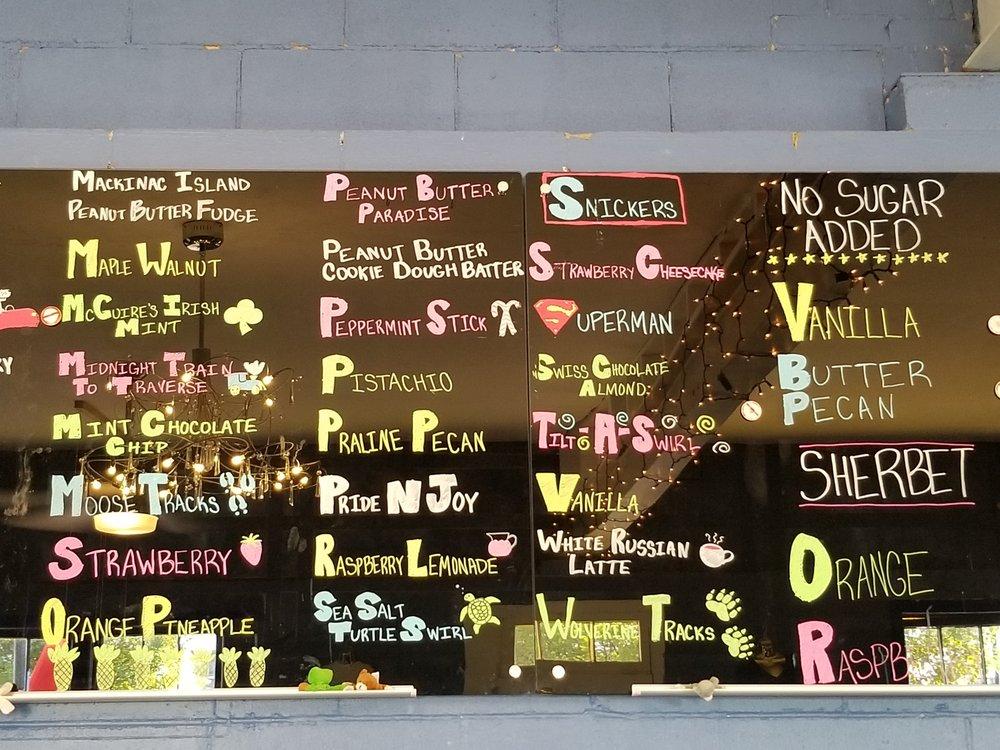 Mackinac Island
Peanut Butter Fudge
Maple Walnut
McGuire's Irish
Mint
Midnight Train
To Traverse
Mint Chocolate
Chip
Moose Tracks
Strawberry
Orange Pineapple
Peanut Butter
Paradise
Peanut Butter
Cookie Dough Batter
Peppermint Stick
Pistachio
Praline Pecan
Pride N Joy
Raspberry Lemonade
Sea Salt
Turtle Swirl
Snickers
Strawberry Cheesecake
Superman
Swiss Chocolate
Almond
Tilt-A-Swirl
Vanilla
White Russian
Latte
Wolverine Tracks
No Sugar
Added
Vanilla
Butter
Pecan
Sherbet
Orange
Raspb